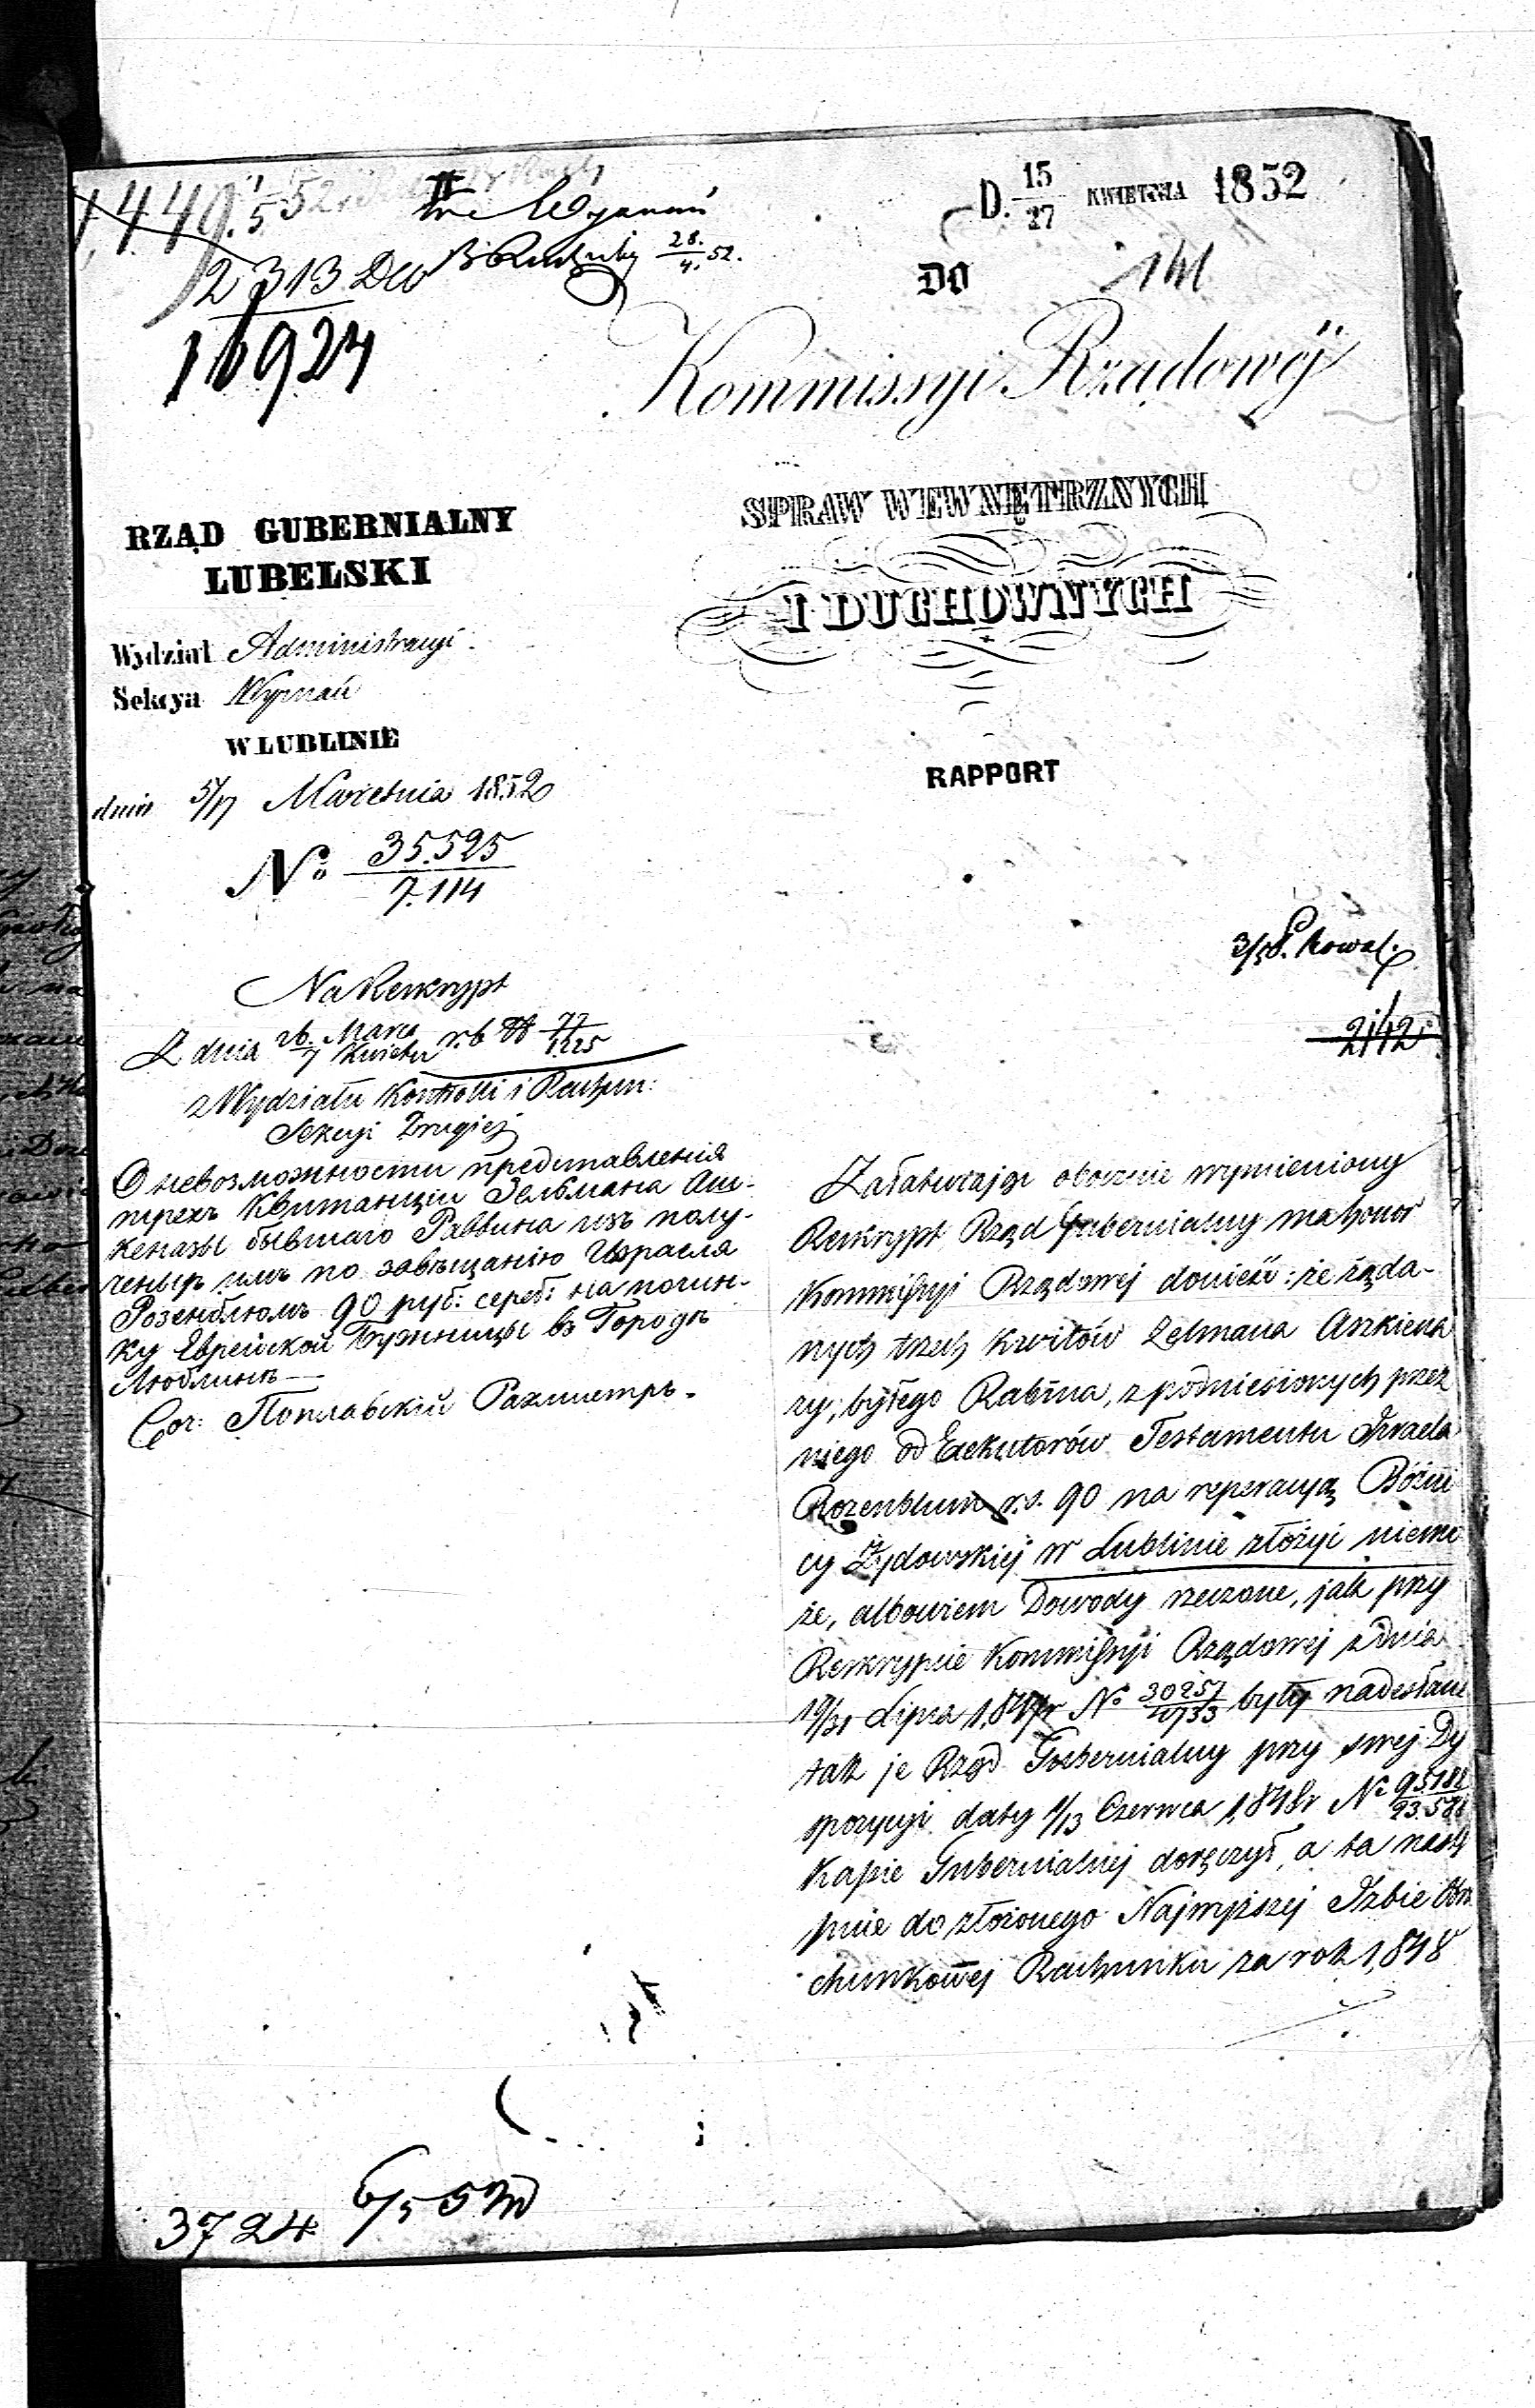 D. 15/27 KWIETNIA 1852
1,449.
52
Wyznań
28./4. 52.
2313 DW
16924
DO
141
Kommissyi Rządowéj
SPRAW WEWNĘTRZNYCH
I DUCHOWNYCH
RAPPORT
RZĄD GUBERNIALNY
LUBELSKI
Wydział Administracyi
Sekcya Wyznań
W LUBLINIE
dnia 5/17 Kwietnia 1852
No: 35.525/7.114
3/5 Kowal.
2142
Na Reskrypt
Z dnia 26. Marca/7 Kwietn r. b. № 77/1225
z Wydziału Kontrolli i Rachun:
Sekcyi Drugiej
О невозможности представления
трехъ Квитанцiи Зельмана Аш-
кеназы бывшаго Раввина изъ полу-
ченыхъ имъ по завѣщанiю Израеля
Розенблюмъ 90 руб: сереб: на почин-
ку Еврейской Бужницы въ Городѣ
Люблинѣ —
Соч: Поплавскiй Рахмистръ.
Załatwiając obocznie wymieniony
Reskrypt Rząd Gubernialny ma honor
Kommissyi Rządowej donieść: że żąda-
nych trzech Kwitów Zelmana Aszkiena
zy, byłego Rabina, z podniesionych przez
niego od Exekutorów Testamentu Izraela
Rozenblum r.s. 90 na reperacyą Bóźni
cy Żydowskiej w Lublinie złożyć niemo
że, albowiem Dowody rzeczone, jak przy
Reskrypcie Kommissyi Rządowej z dnia
19/31 Lipca 1,847r No 30257/10733 były nadesłane
tak je Rząd Gubernialny przy swej Dy
spozycyi daty 1/13 Czerwca 1,848r No 95182/23.588
Kassie Gubernialnej doręczył, a ta nastę
pnie do złożonego Najwyższej Izbie Obra
chunkowej Rachunku za rok 1,848
3724
6/5